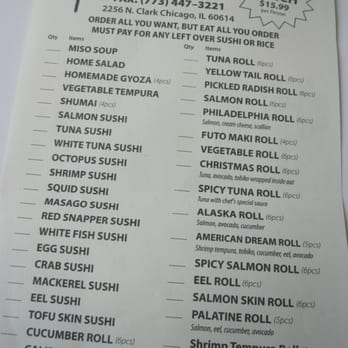 FAX: (773) 447-3221
2256 N. Clark Chicago, IL 60614
$15.99
per Person
ORDER ALL YOU WANT, BUT EAT ALL YOU ORDER
MUST PAY FOR ANY LEFT OVER SUSHI OR RICE
Qty Items
MISO SOUP
HOME SALAD
HOMEMADE GYOZA (4pcs)
VEGETABLE TEMPURA
SHUMAI (4pcs)
SALMON SUSHI
TUNA SUSHI
WHITE TUNA SUSHI
OCTOPUS SUSHI
SHRIMP SUSHI
SQUID SUSHI
MASAGO SUSHI
RED SNAPPER SUSHI
WHITE FISH SUSHI
EGG SUSHI
CRAB SUSHI
MACKEREL SUSHI
EEL SUSHI
TOFU SKIN SUSHI
CUCUMBER ROLL (6pcs)
Qty Items
TUNA ROLL (6pcs)
YELLOW TAIL ROLL (6pcs)
PICKLED RADISH ROLL (6pcs)
SALMON ROLL (6pcs)
PHILADELPHIA ROLL (6pcs)
Salmon, cream cheese, scallion
FUTO MAKI ROLL (4pcs)
VEGETABLE ROLL (6pcs)
CHRISTMAS ROLL (6pcs)
Tuna, avocado, tobiko wrapped inside out
SPICY TUNA ROLL (6pcs)
Tuna with chef's special sauce
ALASKA ROLL (6pcs)
Salmon, avocado, cucumber
AMERICAN DREAM ROLL (5pcs)
Shrimp tempura, tobiko, cucumber, eel, avocado
SPICY SALMON ROLL (6pcs)
EEL ROLL (6pcs)
SALMON SKIN ROLL (6pcs)
PALATINE ROLL (5pcs)
Salmon, eel, cucumber, avocado
Shrimp Tempura Roll